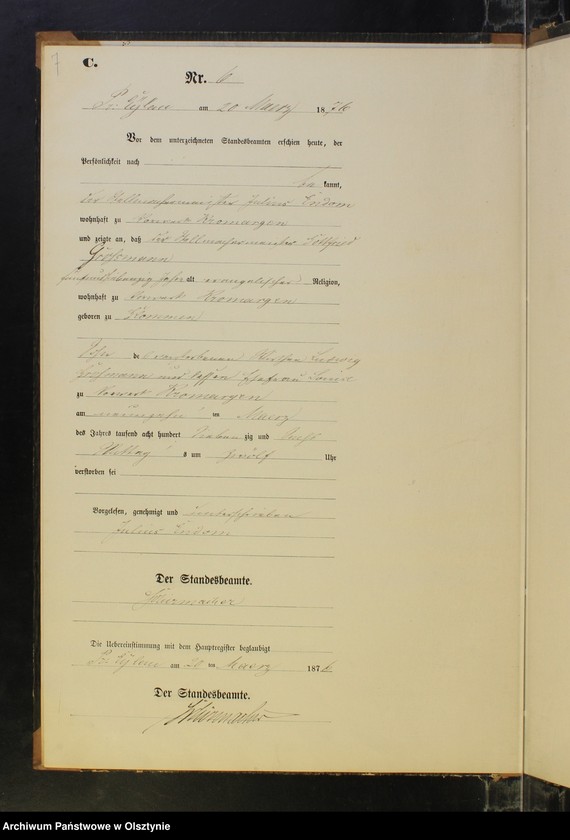 7
C.
Nr. 6
Pr: Eylau am 20 Maerz 1876
Vor dem unterzeichneten Standesbeamten erschien heute, der
Persönlichkeit nach
be kannt,
der Stellmachermeister Julius Endom
wohnhaft zu Kromargen
und zeigte an, daß der Stellmachermeister Gottfried
alt evangelischer Religion,
wohnhaft zu Vorwerk Kromargen
geboren zu
Sohn des verstorbenen Ludwig
und dessen Ehefrau
zu Vorwerk Kromargen
am neunzehn ten Maerz
des Jahres tausend acht hundert sieben zig und sechs
Mittag s um zwölf Uhr
verstorben sei
Vorgelesen, genehmigt und unterschrieben
Julius Endom
Der Standesbeamte.
Die Uebereinstimmung mit dem Hauptregister beglaubigt
Pr: Eylau am 20 ten Maerz 1876
Der Standesbeamte.
Archiwum Państwowe w Olsztynie